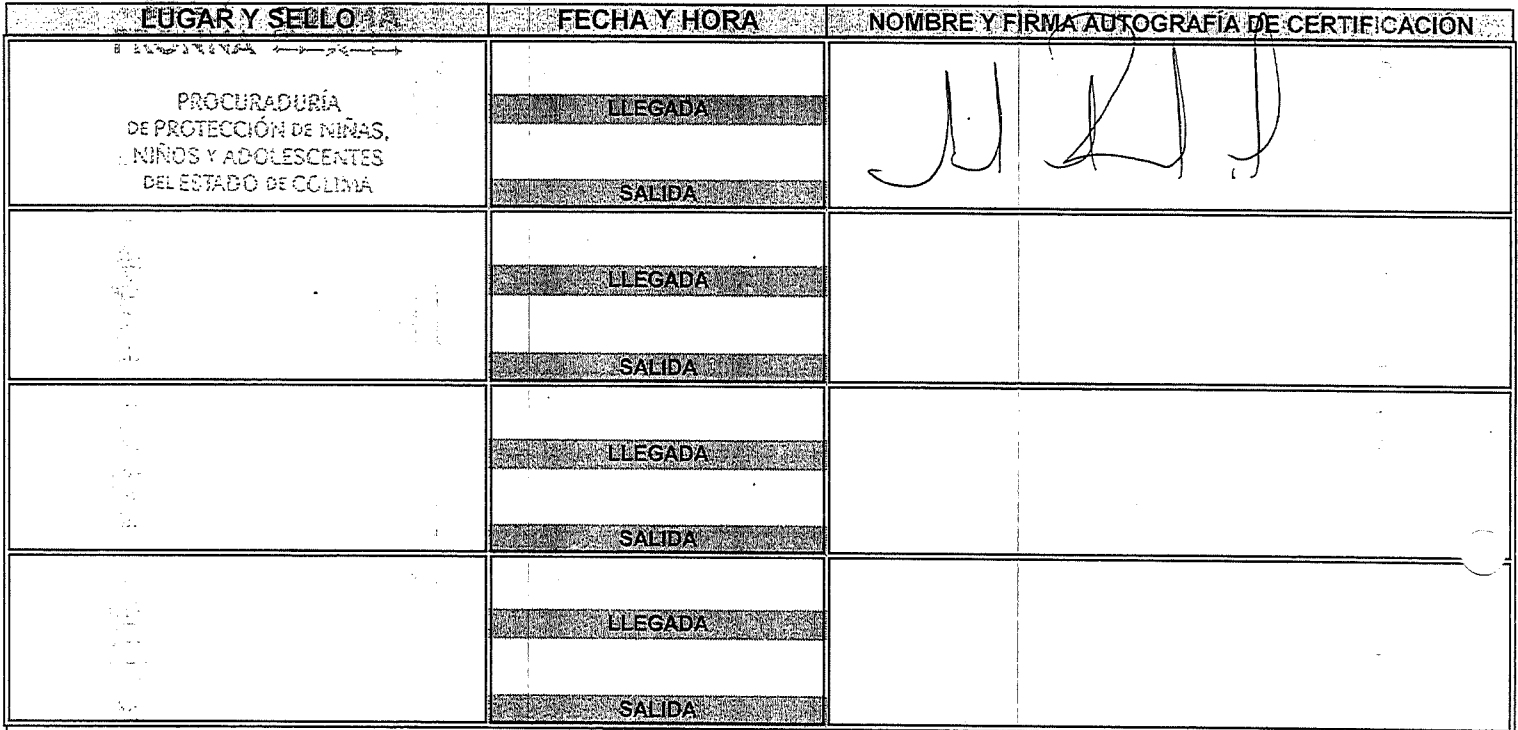 LUGAR Y SELLO
FECHA Y HORA
NOMBRE Y FIRMA AUTOGRAFÍA DE CERTIFICACIÓN
PROCURADURÍA
DE PROTECCIÓN DE NIÑAS,
NIÑOS Y ADOLESCENTES
DEL ESTADO DE COLIMA
LLEGADA
SALIDA
LLEGADA
SALIDA
LLEGADA
SALIDA
LLEGADA
SALIDA